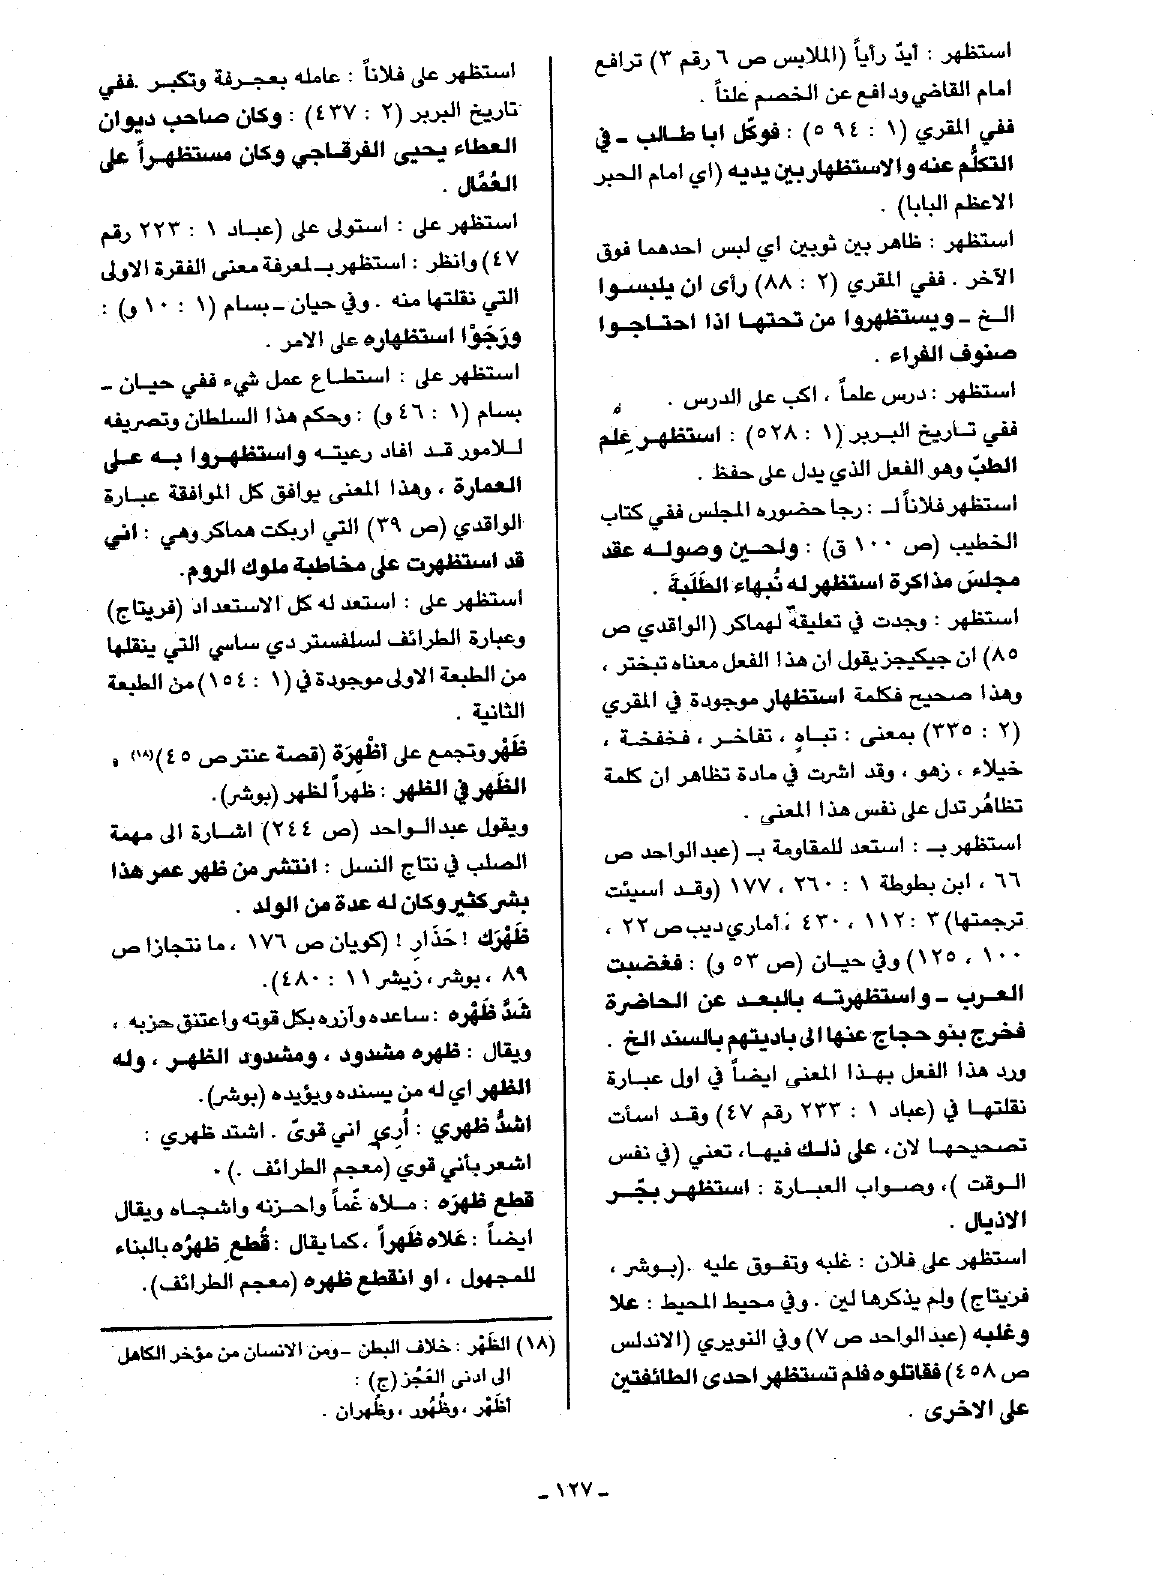 استظهر : أيدّ رأياً (الملابس ص ٦ رقم ٣) ترافع
امام القاضي ودافع عن الخصم علناً .
ففي المقري (١ : ٥٩٤) : فوكّل ابا طالب ــ في
التكلُّم عنه والاستظهار بين يديه (اي امام الحبر
الاعظم البابا) .
استظهر : ظاهر بين ثوبين اي لبس احدهما فوق
الآخر . ففي المقري (٢ : ٨٨) رأى ان يلبسوا
الخ ــ ويستظهروا من تحتها اذا احتاجوا
صنوف الفراء .
استظهر : درس علماً ، اكب على الدرس .
ففي تاريخ البربر (١ : ٥٢٨) : استظهر عِلم
الطبّ وهو الفعل الذي يدل على حفظ .
استظهر فلاناً لـ : رجا حضوره المجلس ففي كتاب
الخطيب (ص ١٠٠ ق) : ولحين وصوله عقد
مجلسَ مذاكرة استظهر له نُبهاء الطَلَبةَ .
استظهر : وجدت في تعليقةٌ لهماكر (الواقدي ص
٨٥) ان جيكيجز يقول ان هذا الفعل معناه تبختر ،
وهذا صحيح فكلمة استظهار موجودة في المقري
(٢ : ٣٣٥) بمعنى : تباهٍ ، تفاخر ، فخفخة ،
خيلاء ، زهو ، وقد اشرت في مادة تظاهر ان كلمة
تظاهُر تدل على نفس هذا المعنى .
استظهر بـ : استعد للمقاومة بـ (عبد الواحد ص
٦٦ ، ابن بطوطة ١ : ٢٦٠ ، ١٧٧ (وقد اسيئت
ترجمتها) ٣ : ١١٢ ، ٤٣٠ ، أماري ديب ص ٢٢ ،
١٠٠ ، ١٢٥) وفي حيان (ص ٥٣ و) : فغضبت
العرب ــ واستظهرته بالبعد عن الحاضرة
فخرج بنو حجاج عنها الى باديتهم بالسند الخ .
ورد هذا الفعل بهذا المعنى ايضاً في اول عبارة
نقلتها في (عباد ١ : ٢٣٣ رقم ٤٧) وقد اسأت
تصحيحها لان، على ذلك فيها، تعني (في نفس
الوقت )، وصواب العبارة : استظهر بجّر
الاذيال .
استظهر على فلان : غلبه وتفوق عليه .(بوشر ،
فريتاج) ولم يذكرها لين . وفي محيط المحيط : علا
وغلبه (عبد الواحد ص ٧) وفي النويري (الاندلس
ص ٤٥٨) فقاتلوه فلم تستظهر احدى الطائفتين
على الاخرى .
استظهر على فلاناً : عامله بعجرفة وتكبر .ففي
تاريخ البربر (٢ : ٤٣٧) : وكان صاحب ديوان
العطاء يحيى الفرقاجي وكان مستظهراً على
العُمَّال .
استظهر على : استولى على (عباد ١ : ٢٢٣ رقم
٤٧) وانظر : استظهر بـ لمعرفة معنى الفقرة الاولى
التي نقلتها منه . وفي حيان ــ بسام (١ : ١٠ و) :
ورَجَوْا استظهاره على الامر .
استظهر على : استطاع عمل شيء ففي حيان ــ
بسام (١ : ٤٦ و) : وحكم هذا السلطان وتصريفه
للامور قد افاد رعيته واستظهروا به على
العمارة ، وهذا المعنى يوافق كل الموافقة عبارة
الواقدي (ص ٣٩) التي اربكت هماكر وهي : اني
قد استظهرت على مخاطبة ملوك الروم.
استظهر على : استعد له كل الاستعداد (فريتاج)
وعبارة الطرائف لسلفستر دي ساسي التي ينقلها
من الطبعة الاولى موجودة في (١ : ١٥٤) من الطبعة
الثانية .
ظَهْر وتجمع على أظْهِرَة (قصة عنتر ص ٤٥)(١٨) ،
الظَهر في الظهر : ظهراً لظهر (بوشر).
ويقول عبد الواحد (ص ٢٤٤) اشارة الى مهمة
الصلب في نتاج النسل : انتشر من ظهر عمر هذا
بشر كثير وكان له عدة من الولد .
ظَهْرَك ! حَذَارِ ! (كويان ص ١٧٦ ، مانتجازا ص
٨٩ ، بوشر ، زيشر ١١ : ٤٨٠).
شَدَّ ظَهْره : ساعده وآزره بكل قوته واعتنق حزبه ،
ويقال : ظهره مشدود ، ومشدود الظهر ، وله
الظهر اي له من يسنده ويؤيده (بوشر).
اشدُّ ظهري : أُرِي اني قويّ . اشتد ظهري :
اشعر بأني قوي (معجم الطرائف .) .
قطع ظهرَه : ملاه غّماً واحزنه واشجاه ويقال
ايضاً : عَلاه ظَهراً ، كما يقال : قُطع ظهرُه بالبناء
للمجهول ، او انقطع ظهره (معجم الطرائف).
(١٨) الظَهْر : خلاف البطن ــ ومن الانسان من مؤخر الكاهل
الى ادنى العَجُز (ج) :
أظَهْر ، وظُهُور ، وظُهران .
ــ ١٢٧ ــ